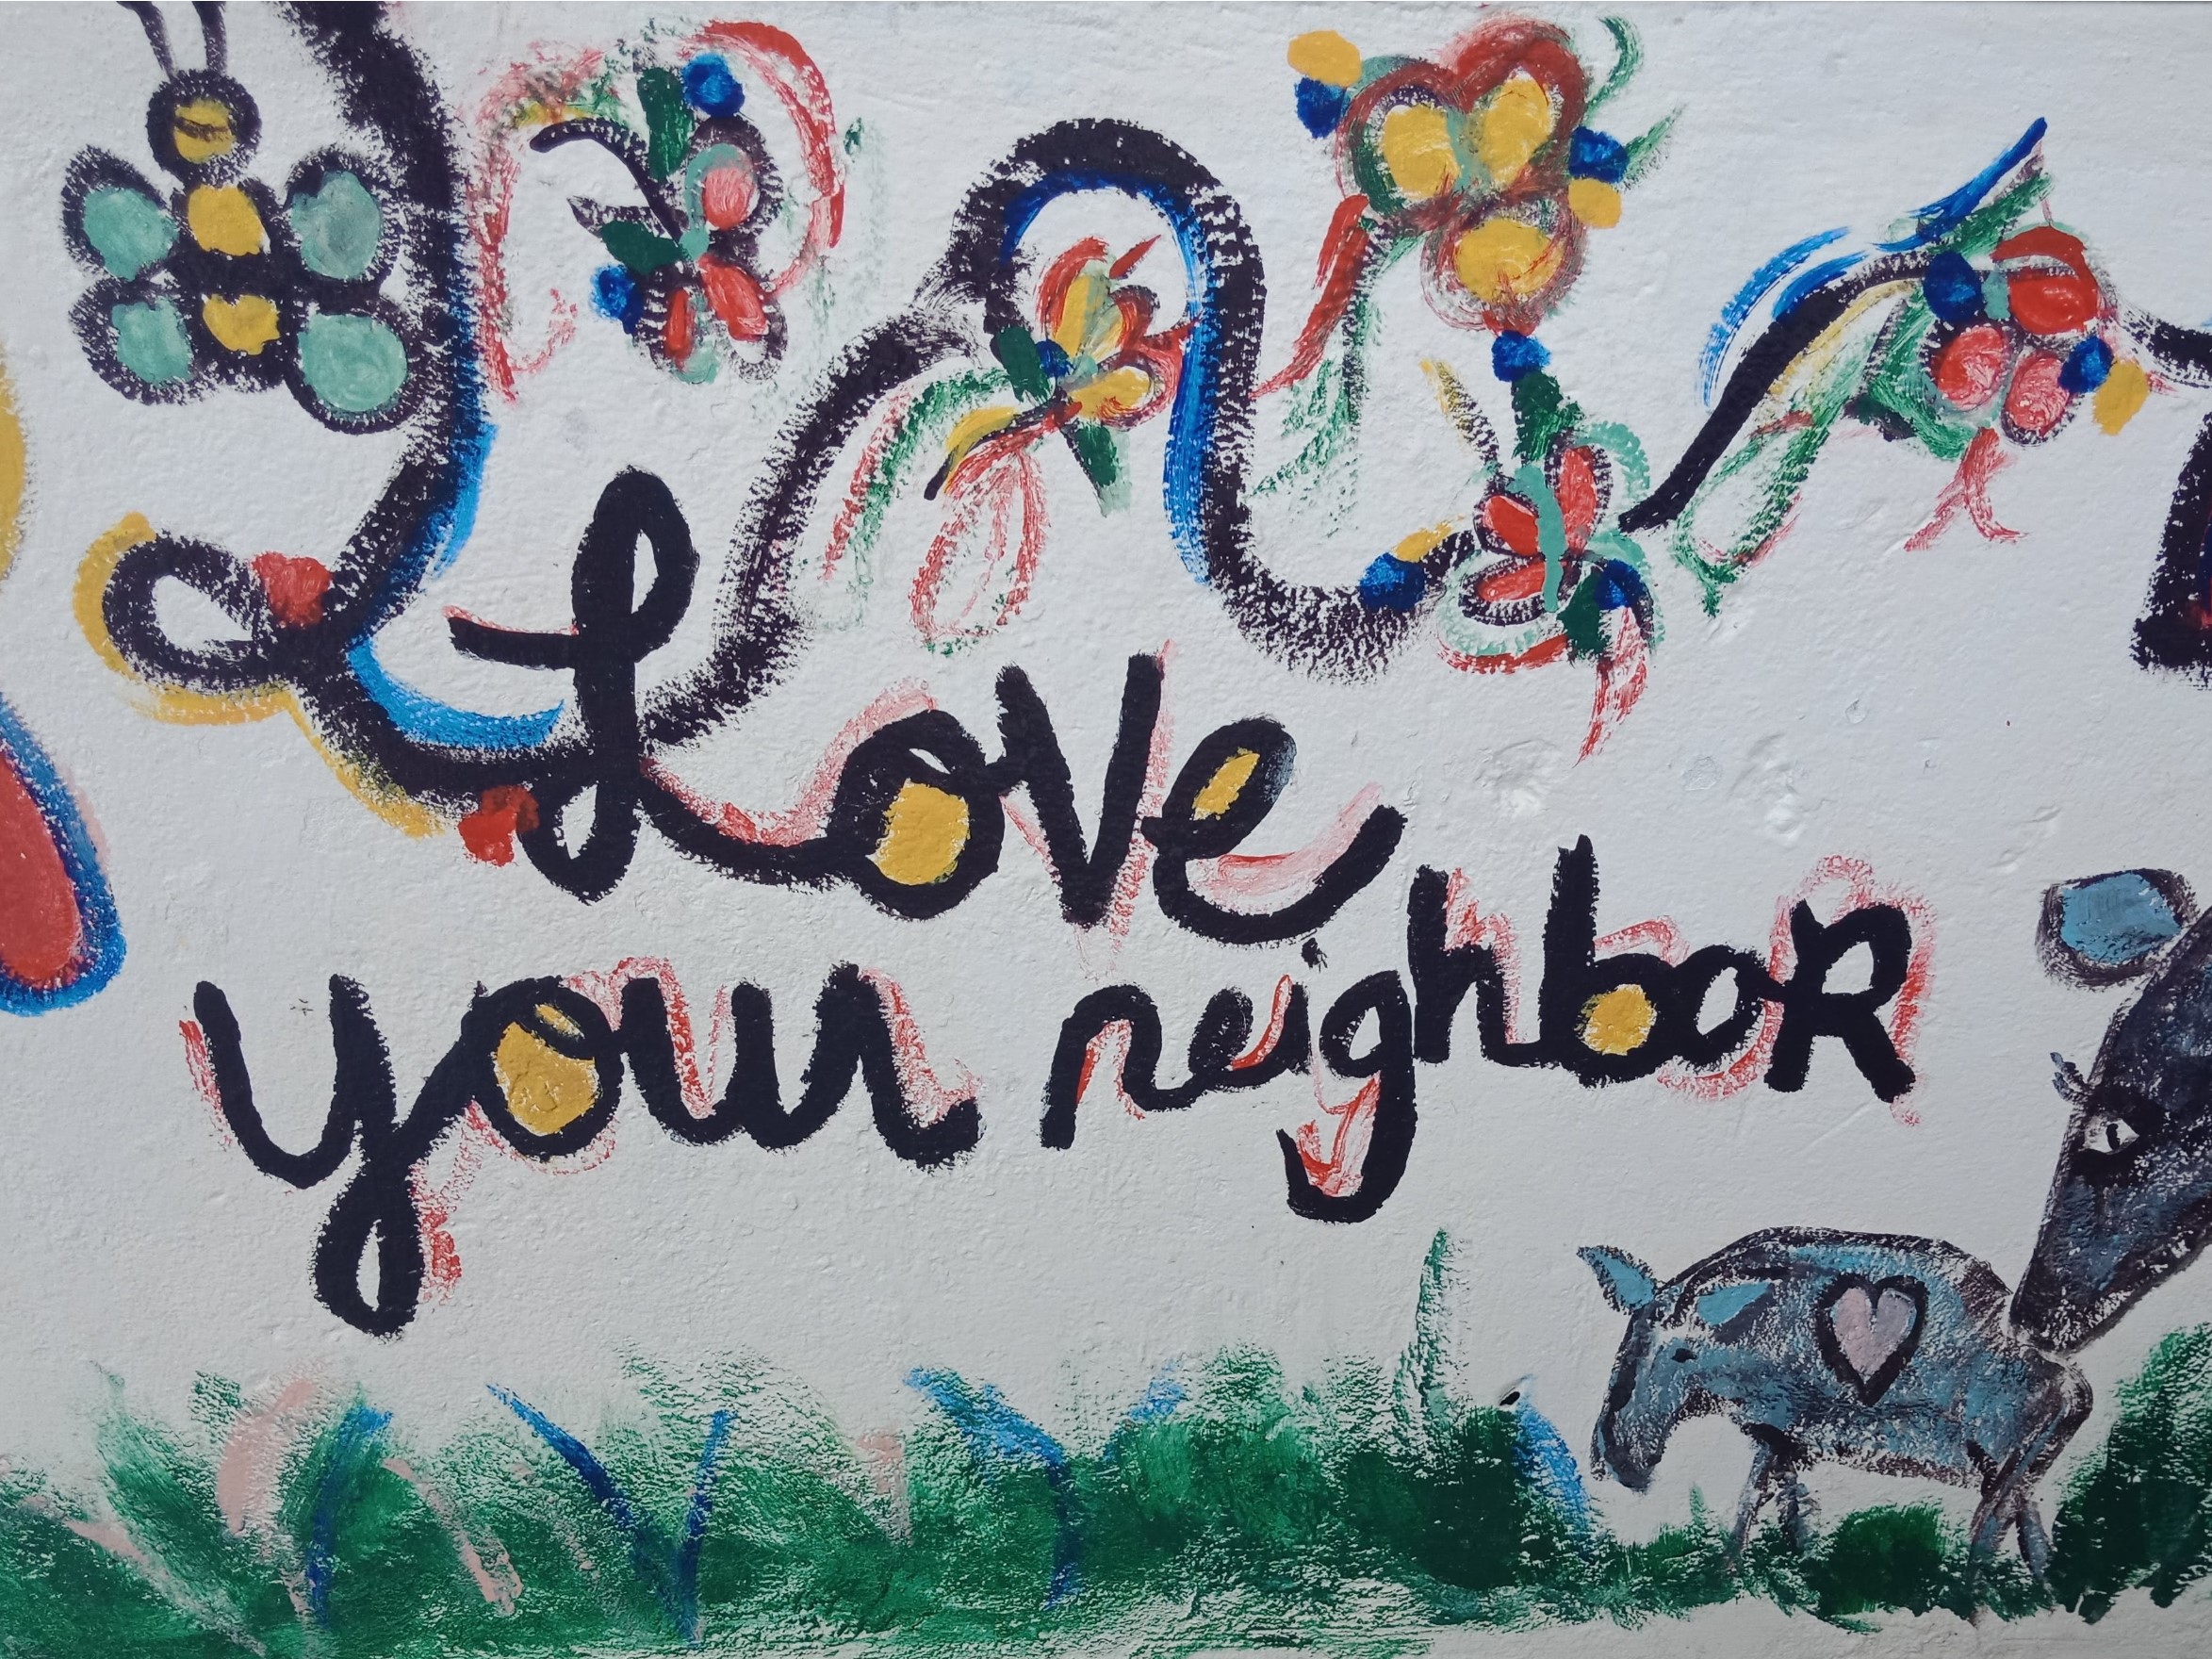 Love
your neighboR